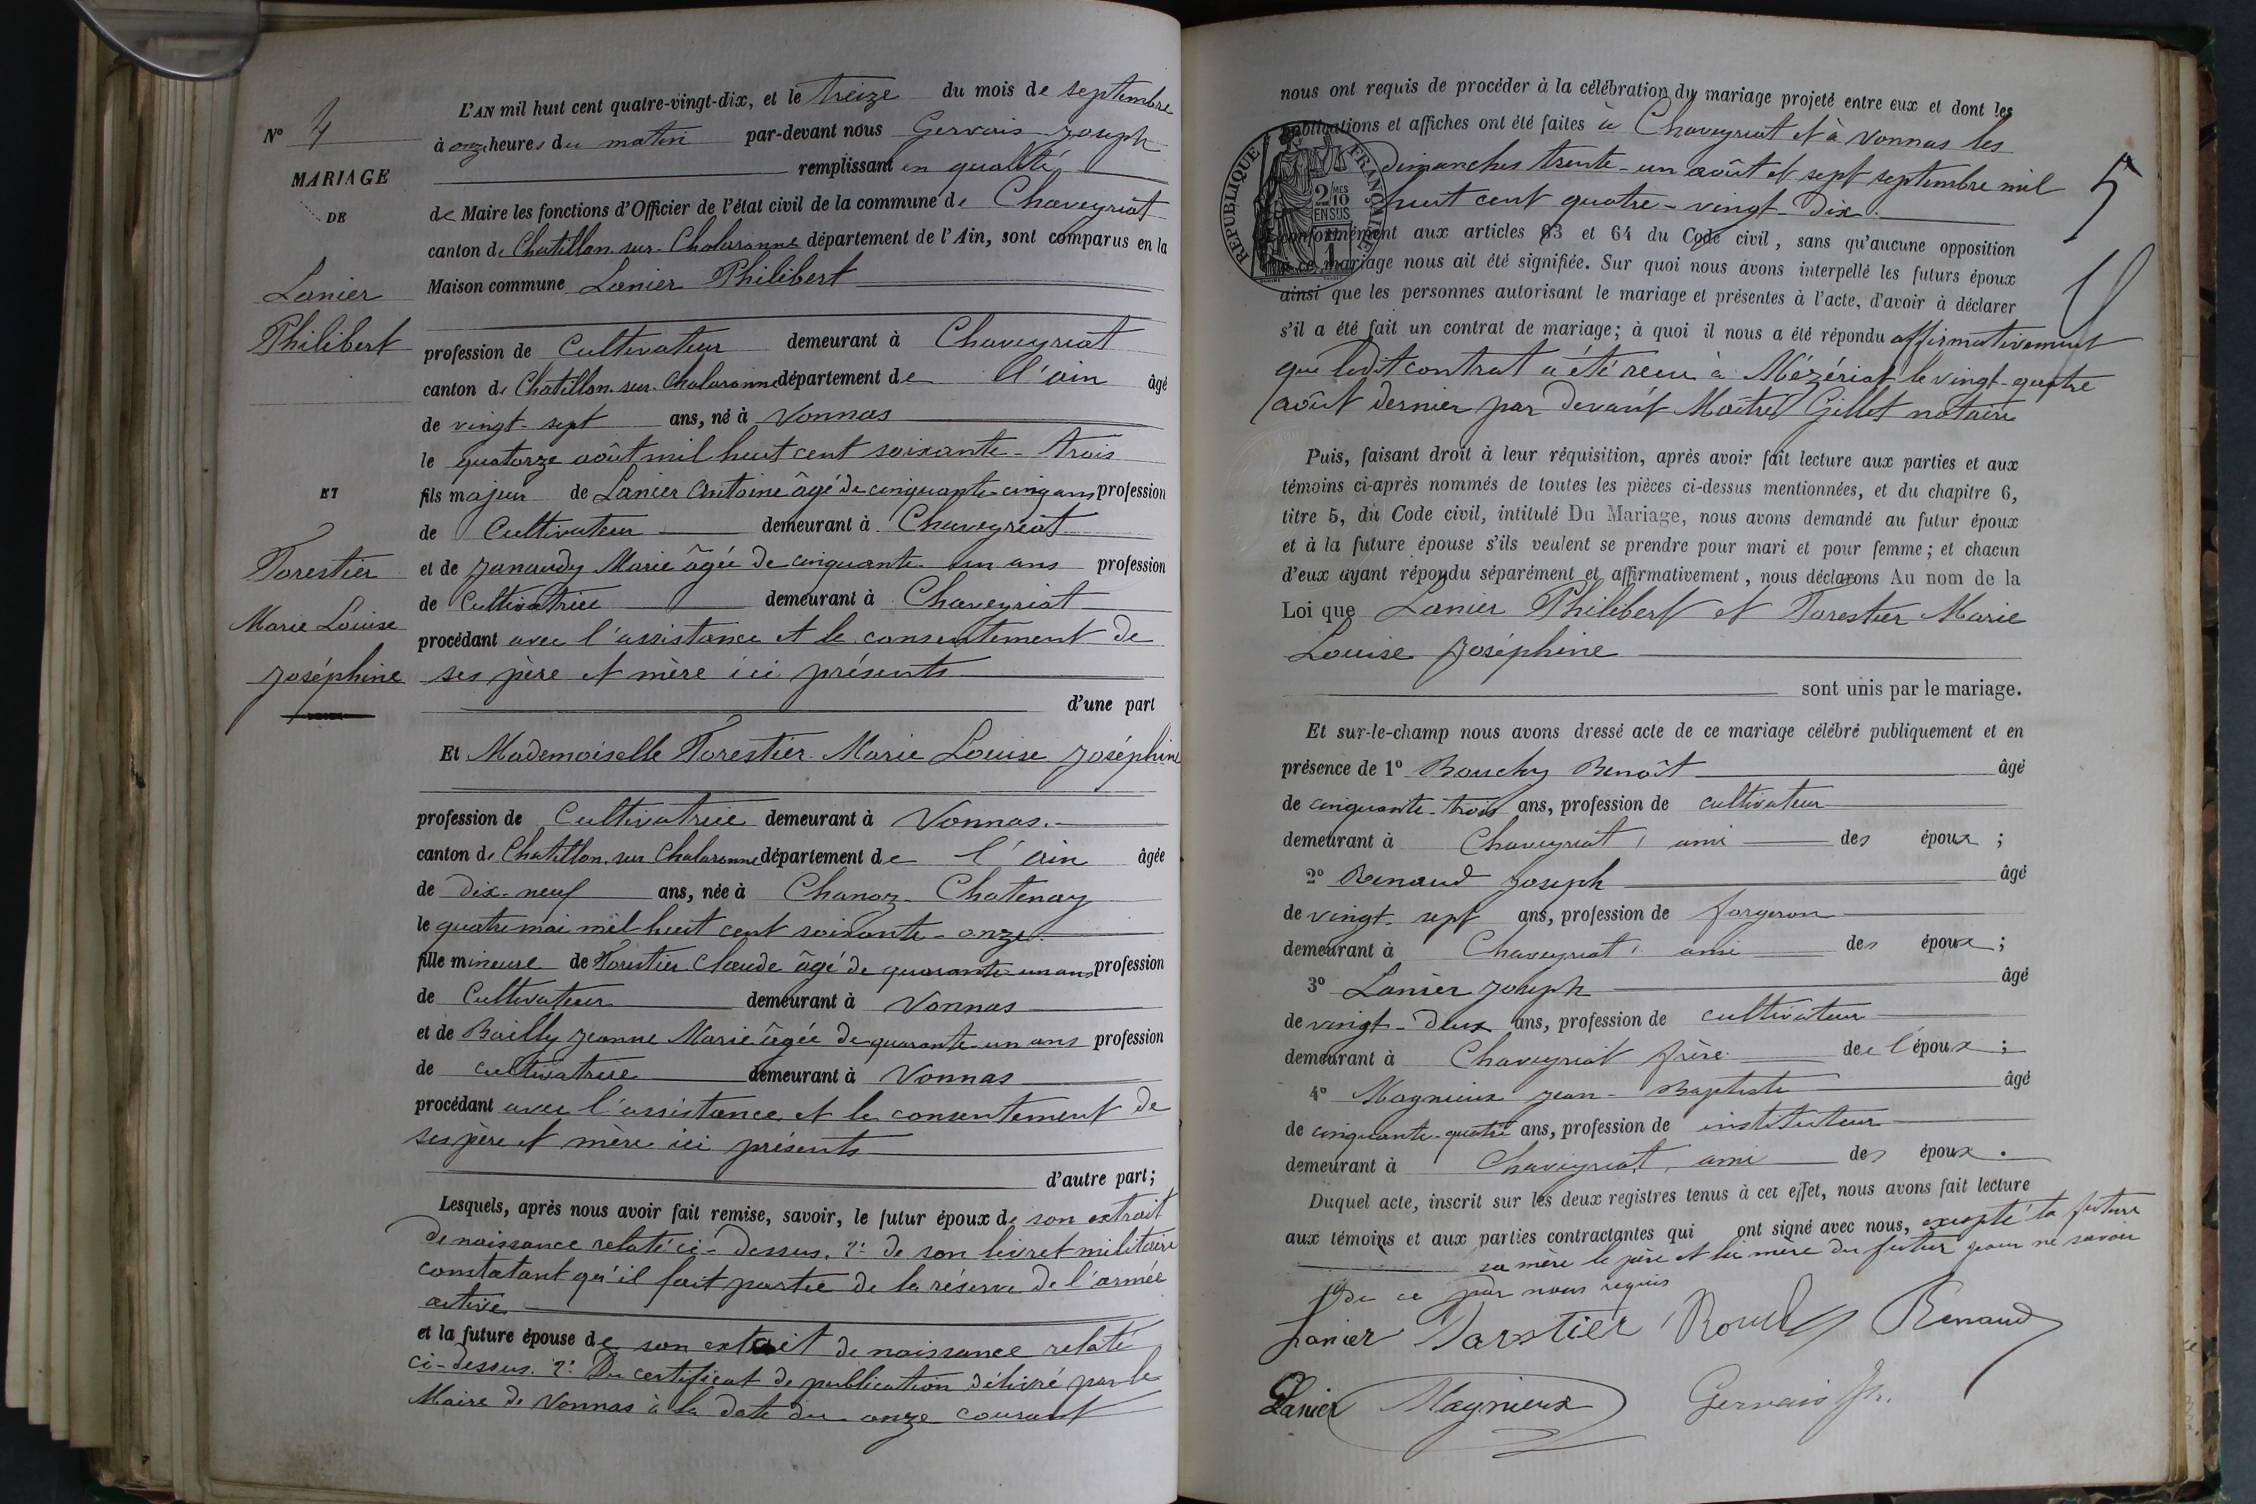 L'AN mil huit cent quatre-vingt-dix, et le treize du mois de septembre
N° 4
à onze heures du matin par-devant nous Gervais Joseph
remplissant en qualité
MARIAGE
DE
de Maire les fonctions d'Officier de l'état civil de la commune de Chaveyriat
canton de Chatillon-sur-Chalaronne département de l'Ain, sont comparus en la
Maison commune Lanier Philibert
Lanier
Philibert
profession de Cultivateur demeurant à Chaveyriat
canton de Chatillon-sur-Chalaronne département de l'ain âgé
de vingt-sept ans, né à Vonnas
le quatorze août mil huit cent soixante-trois
ET
fils majeur de Lanier Antoine âgé de cinquante-cinq ans profession
de Cultivateur demeurant à Chaveyriat
Forestier
Marie Louise
Joséphine
et de Janaudy Marie âgée de cinquante un ans profession
de Cultivatrice demeurant à Chaveyriat
procédant avec l'assistance et le consentement de
ses père et mère ici présents
d'une part
Et Mademoiselle Forestier Marie Louise Joséphine
profession de Cultivatrice demeurant à Vonnas.
canton de Chatillon-sur-Chalaronne département de l'ain âgée
de dix-neuf ans, née à Chanoz-Chatenay
le quatre mai mil huit cent soixante-onze.
fille mineure de Forestier Claude âgé de quarante-un ans profession
de Cultivateur demeurant à Vonnas
et de Bailly Jeanne Marie âgée de quarante-un ans profession
de cultivatrice demeurant à Vonnas
procédant avec l'assistance et le consentement de
ses père et mère ici présents
d'autre part;
Lesquels, après nous avoir fait remise, savoir, le futur époux de son extrait
de naissance relaté ci-dessus. 2: de son livret militaire
constatant qu'il fait partie de la réserve de l'armée
active
et la future épouse de son extrait de naissance relaté
ci-dessus. 2: Du certificat de publication délivré par le
Maire de Vonnas à la date du onze courant
nous ont requis de procéder à la célébration du mariage projeté entre eux et dont les
publications et affiches ont été faites à Chaveyriat et à Vonnas les
dimanches trente-un août et sept septembre mil
huit cent quatre-vingt-dix.
5
RÉPUBLIQUE FRANÇAISE
2/10 MES
EN SUS
conformément aux articles 63 et 64 du Code civil, sans qu'aucune opposition
à ce mariage nous ait été signifiée. Sur quoi nous avons interpellé les futurs époux
ainsi que les personnes autorisant le mariage et présentes à l'acte, d'avoir à déclarer
s'il a été fait un contrat de mariage; à quoi il nous a été répondu affirmativement
que ledit contrat a été reçu à Mézériat le vingt-quatre
août dernier par devant Maître Gillet notaire
Puis, faisant droit à leur réquisition, après avoir fait lecture aux parties et aux
témoins ci-après nommés de toutes les pièces ci-dessus mentionnées, et du chapitre 6,
titre 5, du Code civil, intitulé Du Mariage, nous avons demandé au futur époux
et à la future épouse s'ils veulent se prendre pour mari et pour femme; et chacun
d'eux ayant répondu séparément et affirmativement, nous déclarons Au nom de la
Loi que Lanier Philibert et Forestier Marie
Louise Joséphine
sont unis par le mariage.
Et sur-le-champ nous avons dressé acte de ce mariage célébré publiquement et en
présence de 1° Bouchy Benoît âgé
de cinquante-trois ans, profession de cultivateur
demeurant à Chaveyriat, ami des époux;
2° Renaud Joseph âgé
de vingt-sept ans, profession de forgeron
demeurant à Chaveyriat, ami des époux;
3° Lanier Joseph âgé
de vingt-deux ans, profession de cultivateur
demeurant à Chaveyriat frère de l'époux;
4° Magnieux Jean-Baptiste âgé
de cinquante-quatre ans, profession de instituteur
demeurant à Chaveyriat, ami des époux.
Duquel acte, inscrit sur les deux registres tenus à cet effet, nous avons fait lecture
aux témoins et aux parties contractantes qui ont signé avec nous, excepté la future
sa mère le père et la mère du futur pour ne savoir
de ce par nous requis
Lanier Renaud
Lanier Magnieux Gervais Jh.